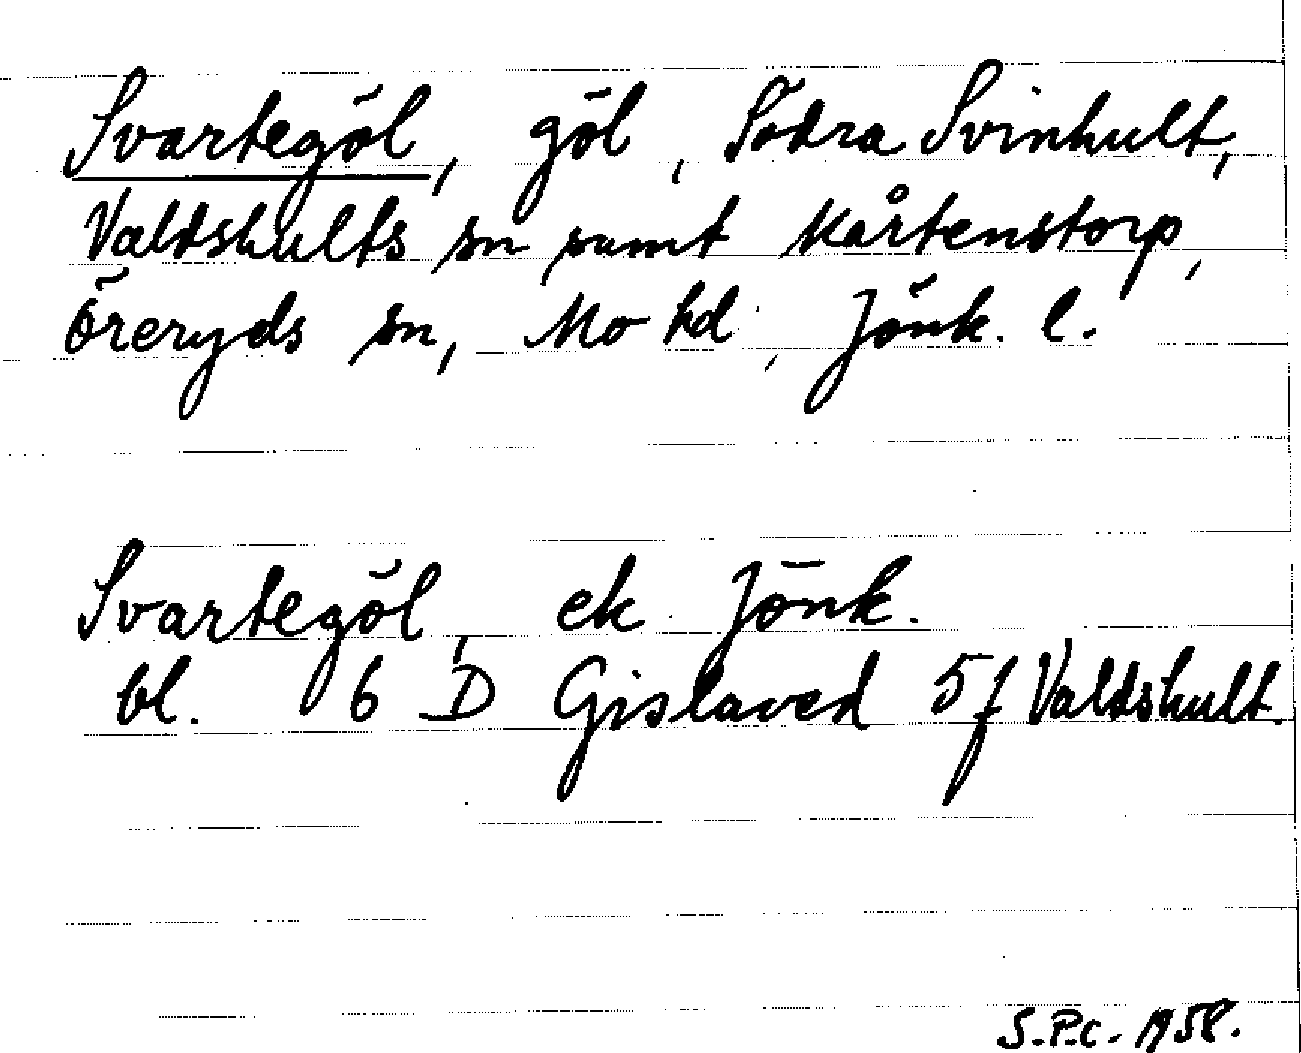 Svartegöl, göl, Södra Svinhult,
Valdshults sn samt Kårtenstorp,
Öreryds sn, Mo hd, Jönk. l.
Svartegöl, ek Jönk.
bl. 6 D Gislaved 5f Valdshult.
S.P.C. 1958.